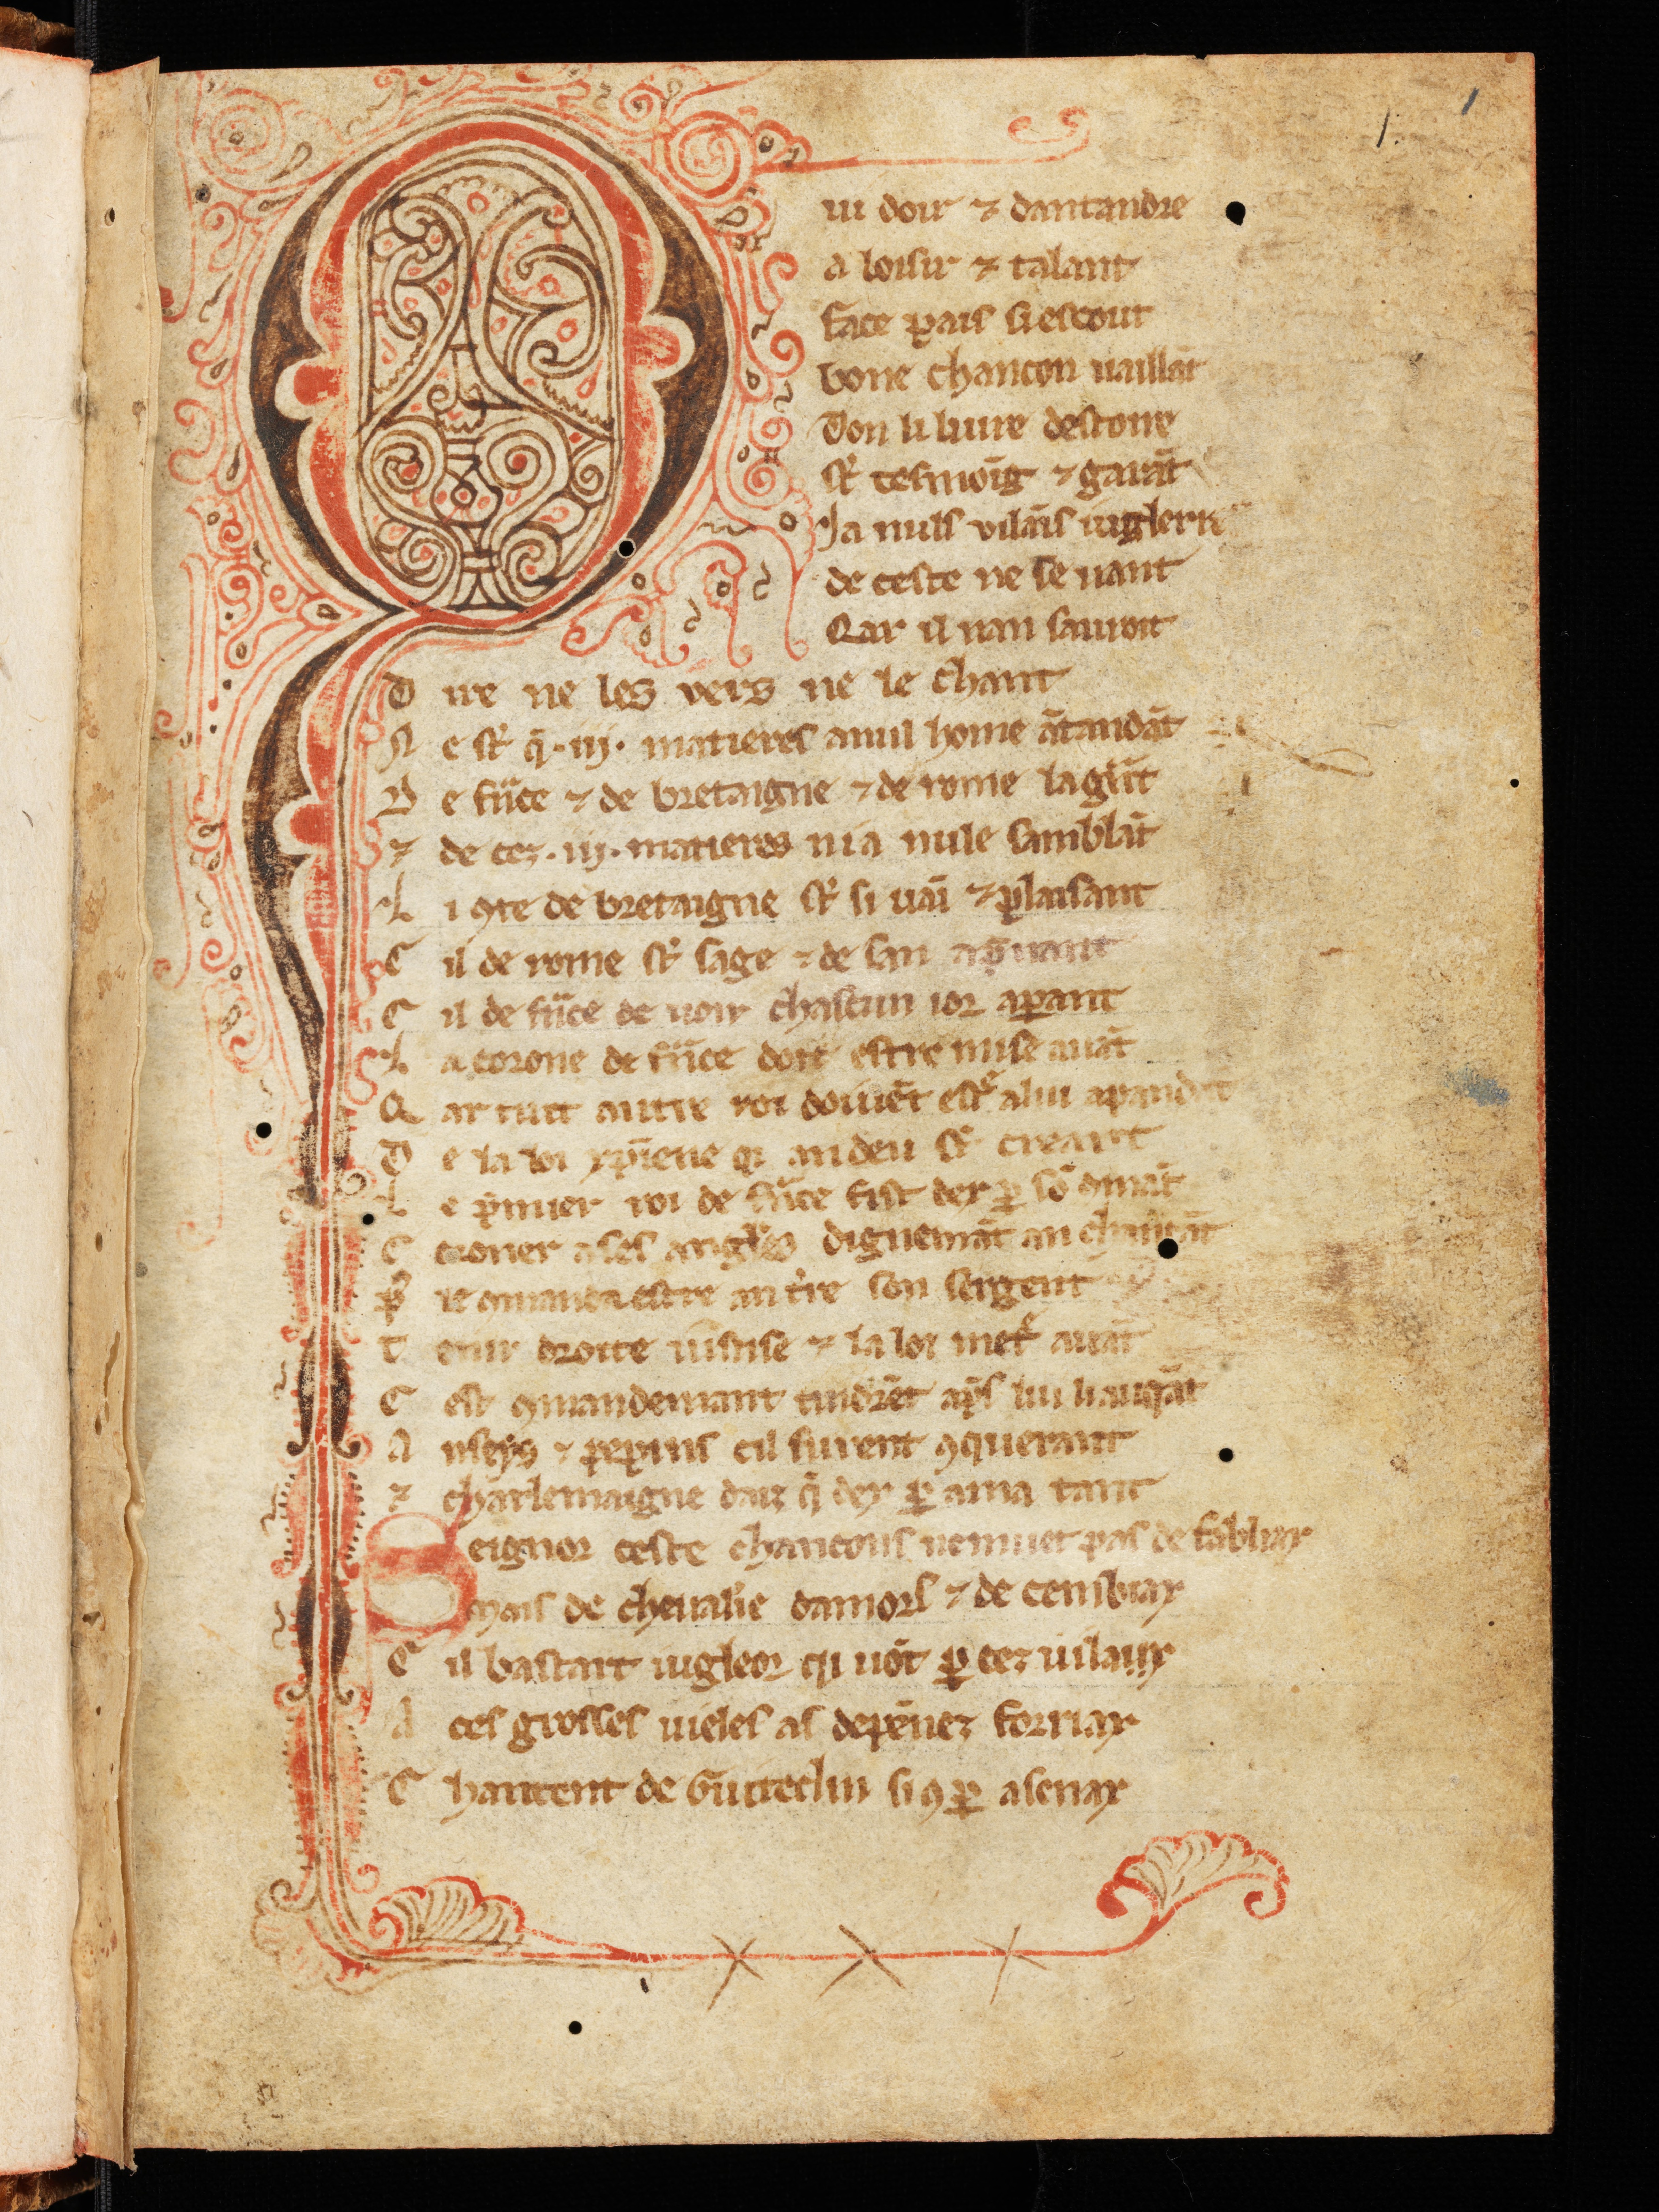 1. 1
Qui doir ⁊ dantandre
a loisir ⁊ talant
face pais si escout
bone chancon uaillāt
Don li liure destoire
st͛ tesmoīg ⁊ garāt
Ja nuls vilāis iugler
de ceste ne se uant
Qar il nan sauroit
D ire ne les vers ne le chant
N e st͛ q̄ .iij. matieres a nul home ātandāt
D e fͣnce ⁊ de bretaigne ⁊ de rome la gͣnt
⁊ de cez .iij. matieres ni a nule sanblāt
L i ꝯte de bretaigne st͛ si uaī ⁊ plaisant
C il de rome st͛ sage ⁊ de san
C il de fͣnce de uoir chascun ior apant
L a corone de fͣnce doit estre mise auāt
Q ar tuit autre roi doiuēt est͛ a lui apandāt
D e la loi xp̄iene qi an deu st͛ creant
L e p̄mier roi de fͣnce fist dex ꝑ sō ꝯmāt
C oroner a ses angles dignemāt an chātāt
P͛ le ꝯmanda estre an t͛re son sergent
T enir droite iustise ⁊ la loi met͛ auāt
C est ꝯmandemant tindrēt ap̄s lui li auqāt
A nseÿs ⁊ pepins cil furent ꝯquerant
⁊ charlemaigne daiz q̄ dex ꝑ ama tant
Seignor ceste chancons ne muet pas de fabliax
Mais de cheualīe damors ⁊ de cenbiax
C il bastart iugleor qi uōt ꝑ cez uilaux
A ces grosses uieles as depēnez forriax
C hantent de Guiteclin si ꝯ ꝑ asenax